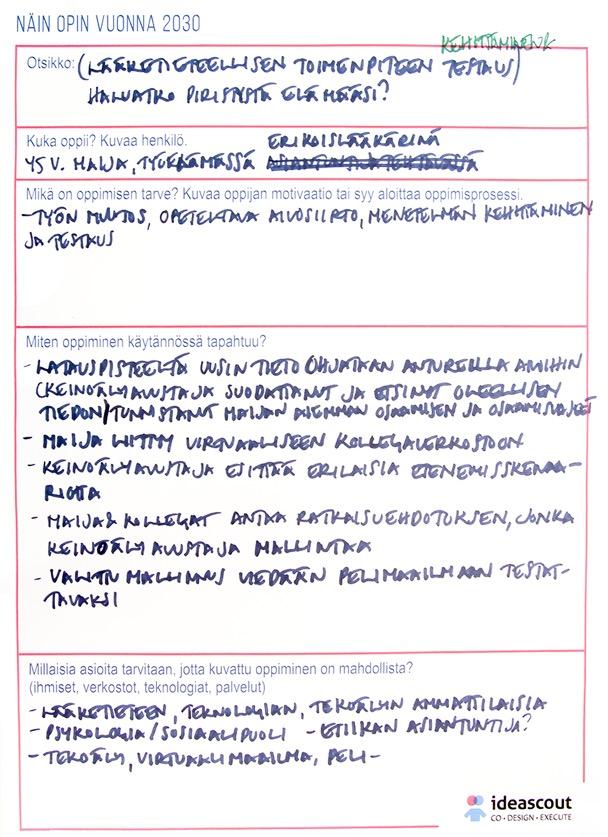 NÄIN OPIN VUONNA 2030
KEHITTÄMINEN &
Otsikko: (LÄÄKETIETEELLISEN TOIMENPITEEN TESTAUS)
HALUATKO PIRISTYSTÄ ELÄMÄÄSI?
Kuka oppii? Kuvaa henkilö.
ERIKOISLÄÄKÄRINÄ
45 V. MAIJA, TYÖELÄMÄSSÄ ASIANTUNTIJATEHTÄVÄSSÄ
Mikä on oppimisen tarve? Kuvaa oppijan motivaatio tai syy aloittaa oppimisprosessi.
- TYÖN MUUTOS, OPETELTAVA AIVOSIIRTO, MENETELMÄN KEHITTÄMINEN
JA TESTAUS
Miten oppiminen käytännössä tapahtuu?
- LATAUSPISTEELTÄ UUSIN TIETO OHJATAAN ANTUREILLA AIVOIHIN
(KEINOÄLYAVUSTAJA SUODATTANUT JA ETSINYT OLEELLISEN
TIEDON/TUNNISTANUT MAIJAN AIEMMAN OSAAMISEN JA OSAAMISVAJEET
- MAIJA LIITTYY VIRTUAALISEEN KOLLEGAVERKOSTOON
- KEINOÄLYAVUSTAJA ESITTÄÄ ERILAISIA ETENEMISSKENAA-
RIOITA
- MAIJA & KOLLEGAT ANTAA RATKAISUEHDOTUKSEN, JONKA
KEINOÄLYAVUSTAJA MALLINTAA
- VALITTU MALLINNUS VIEDÄÄN PELIMAAILMAAN TESTAT-
TAVAKSI
Millaisia asioita tarvitaan, jotta kuvattu oppiminen on mahdollista?
(ihmiset, verkostot, teknologiat, palvelut)
- LÄÄKETIETEEN, TEKNOLOGIAN, TEKOÄLYN AMMATTILAISIA
- PSYKOLOGIA/SOSIAALIPUOLI - ETIIKAN ASIANTUNTIJA?
- TEKOÄLY, VIRTUAALIMAAILMA, PELI-
ideascout
CO • DESIGN • EXECUTE